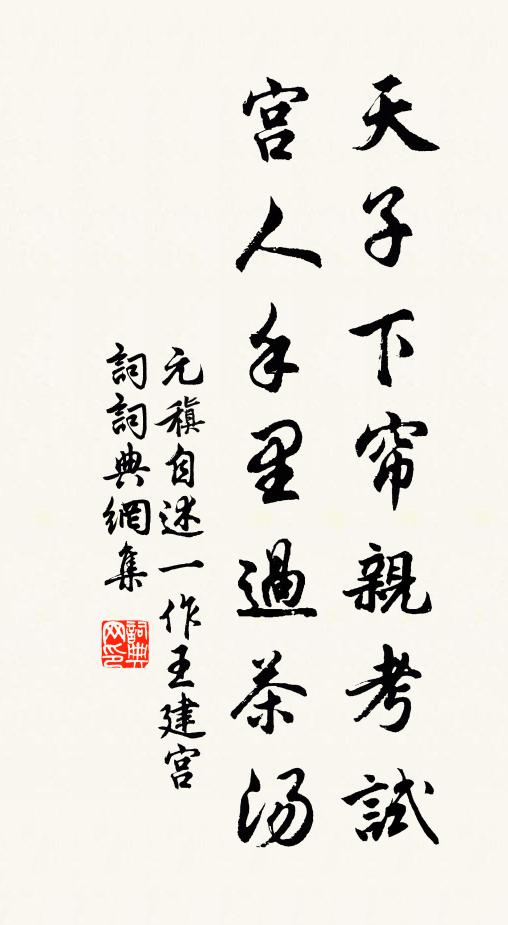 天子下帘親考試
宫人手里過茶汤
元稹自述一作王建宫
詞詞典網集
詞典网印